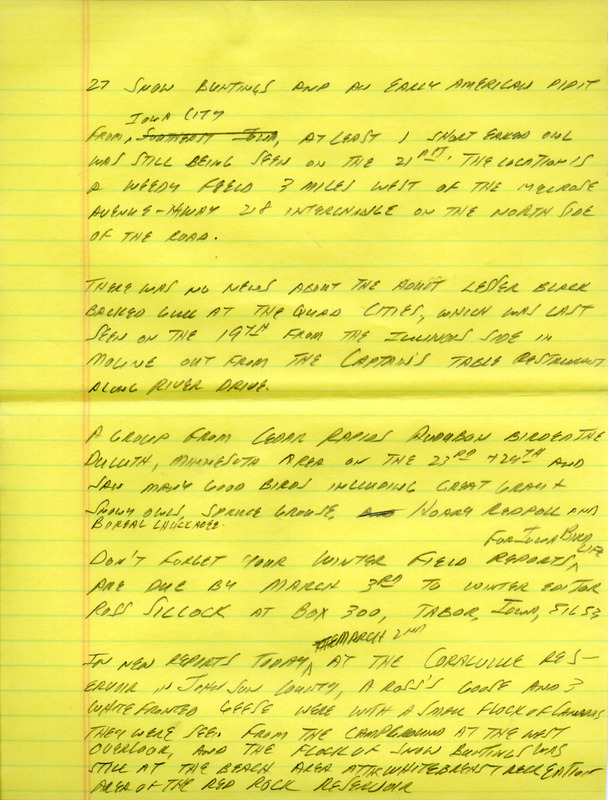 27 SNOW BUNTINGS AND AN EARLY AMERICAN PIPIT
IOWA CITY
FROM, SOUTHEAST IOWA, AT LEAST 1 SHORT EARED OWL
WAS STILL BEING SEEN ON THE 21ST. THE LOCATION IS
A WEEDY FIELD 3 MILES WEST OF THE MELROSE
AVENUE-HWAY 218 INTERCHANGE ON THE NORTH SIDE
OF THE ROAD.
THERE WAS NO NEWS ABOUT THE ADULT LESSER BLACK
BACKED GULL AT THE QUAD CITIES, WHICH WAS LAST
SEEN ON THE 19TH FROM THE ILLINOIS SIDE IN
MOLINE OUT FROM THE CAPTAIN'S TABLE RESTAURANT
ALONG RIVER DRIVE.
A GROUP FROM CEDAR RAPIDS AUDUBON BIRDED THE
DULUTH, MINNESOTA AREA ON THE 23RD + 24TH AND
SAW MANY GOOD BIRDS INCLUDING GREAT GRAY +
SNOWY OWLS, SPRUCE GROUSE, AND HOARY REDPOLL AND
BOREAL CHICKADEE.
FOR IOWA BIRD LIFE
DON'T FORGET YOUR WINTER FIELD REPORTS
ARE DUE BY MARCH 3RD TO WINTER EDITOR
ROSS SILCOCK AT BOX 300, TABOR, IOWA, 51653
THE MARCH 2ND
IN NEW REPORTS TODAY, AT THE CORALVILLE RES-
ERVOIR IN JOHNSON COUNTY, A ROSS'S GOOSE AND 3
WHITE FRONTED GEESE WERE WITH A SMALL FLOCK OF CANADAS
THEY WERE SEE. FROM THE CAMPGROUND AT THE WEST
OVERLOOK, AND THE FLOCK OF SNOW BUNTINGS WAS
STILL AT THE BEACH AREA AT THE WHITEBREAST RECREATION
AREA OF THE RED ROCK RESERVOIR